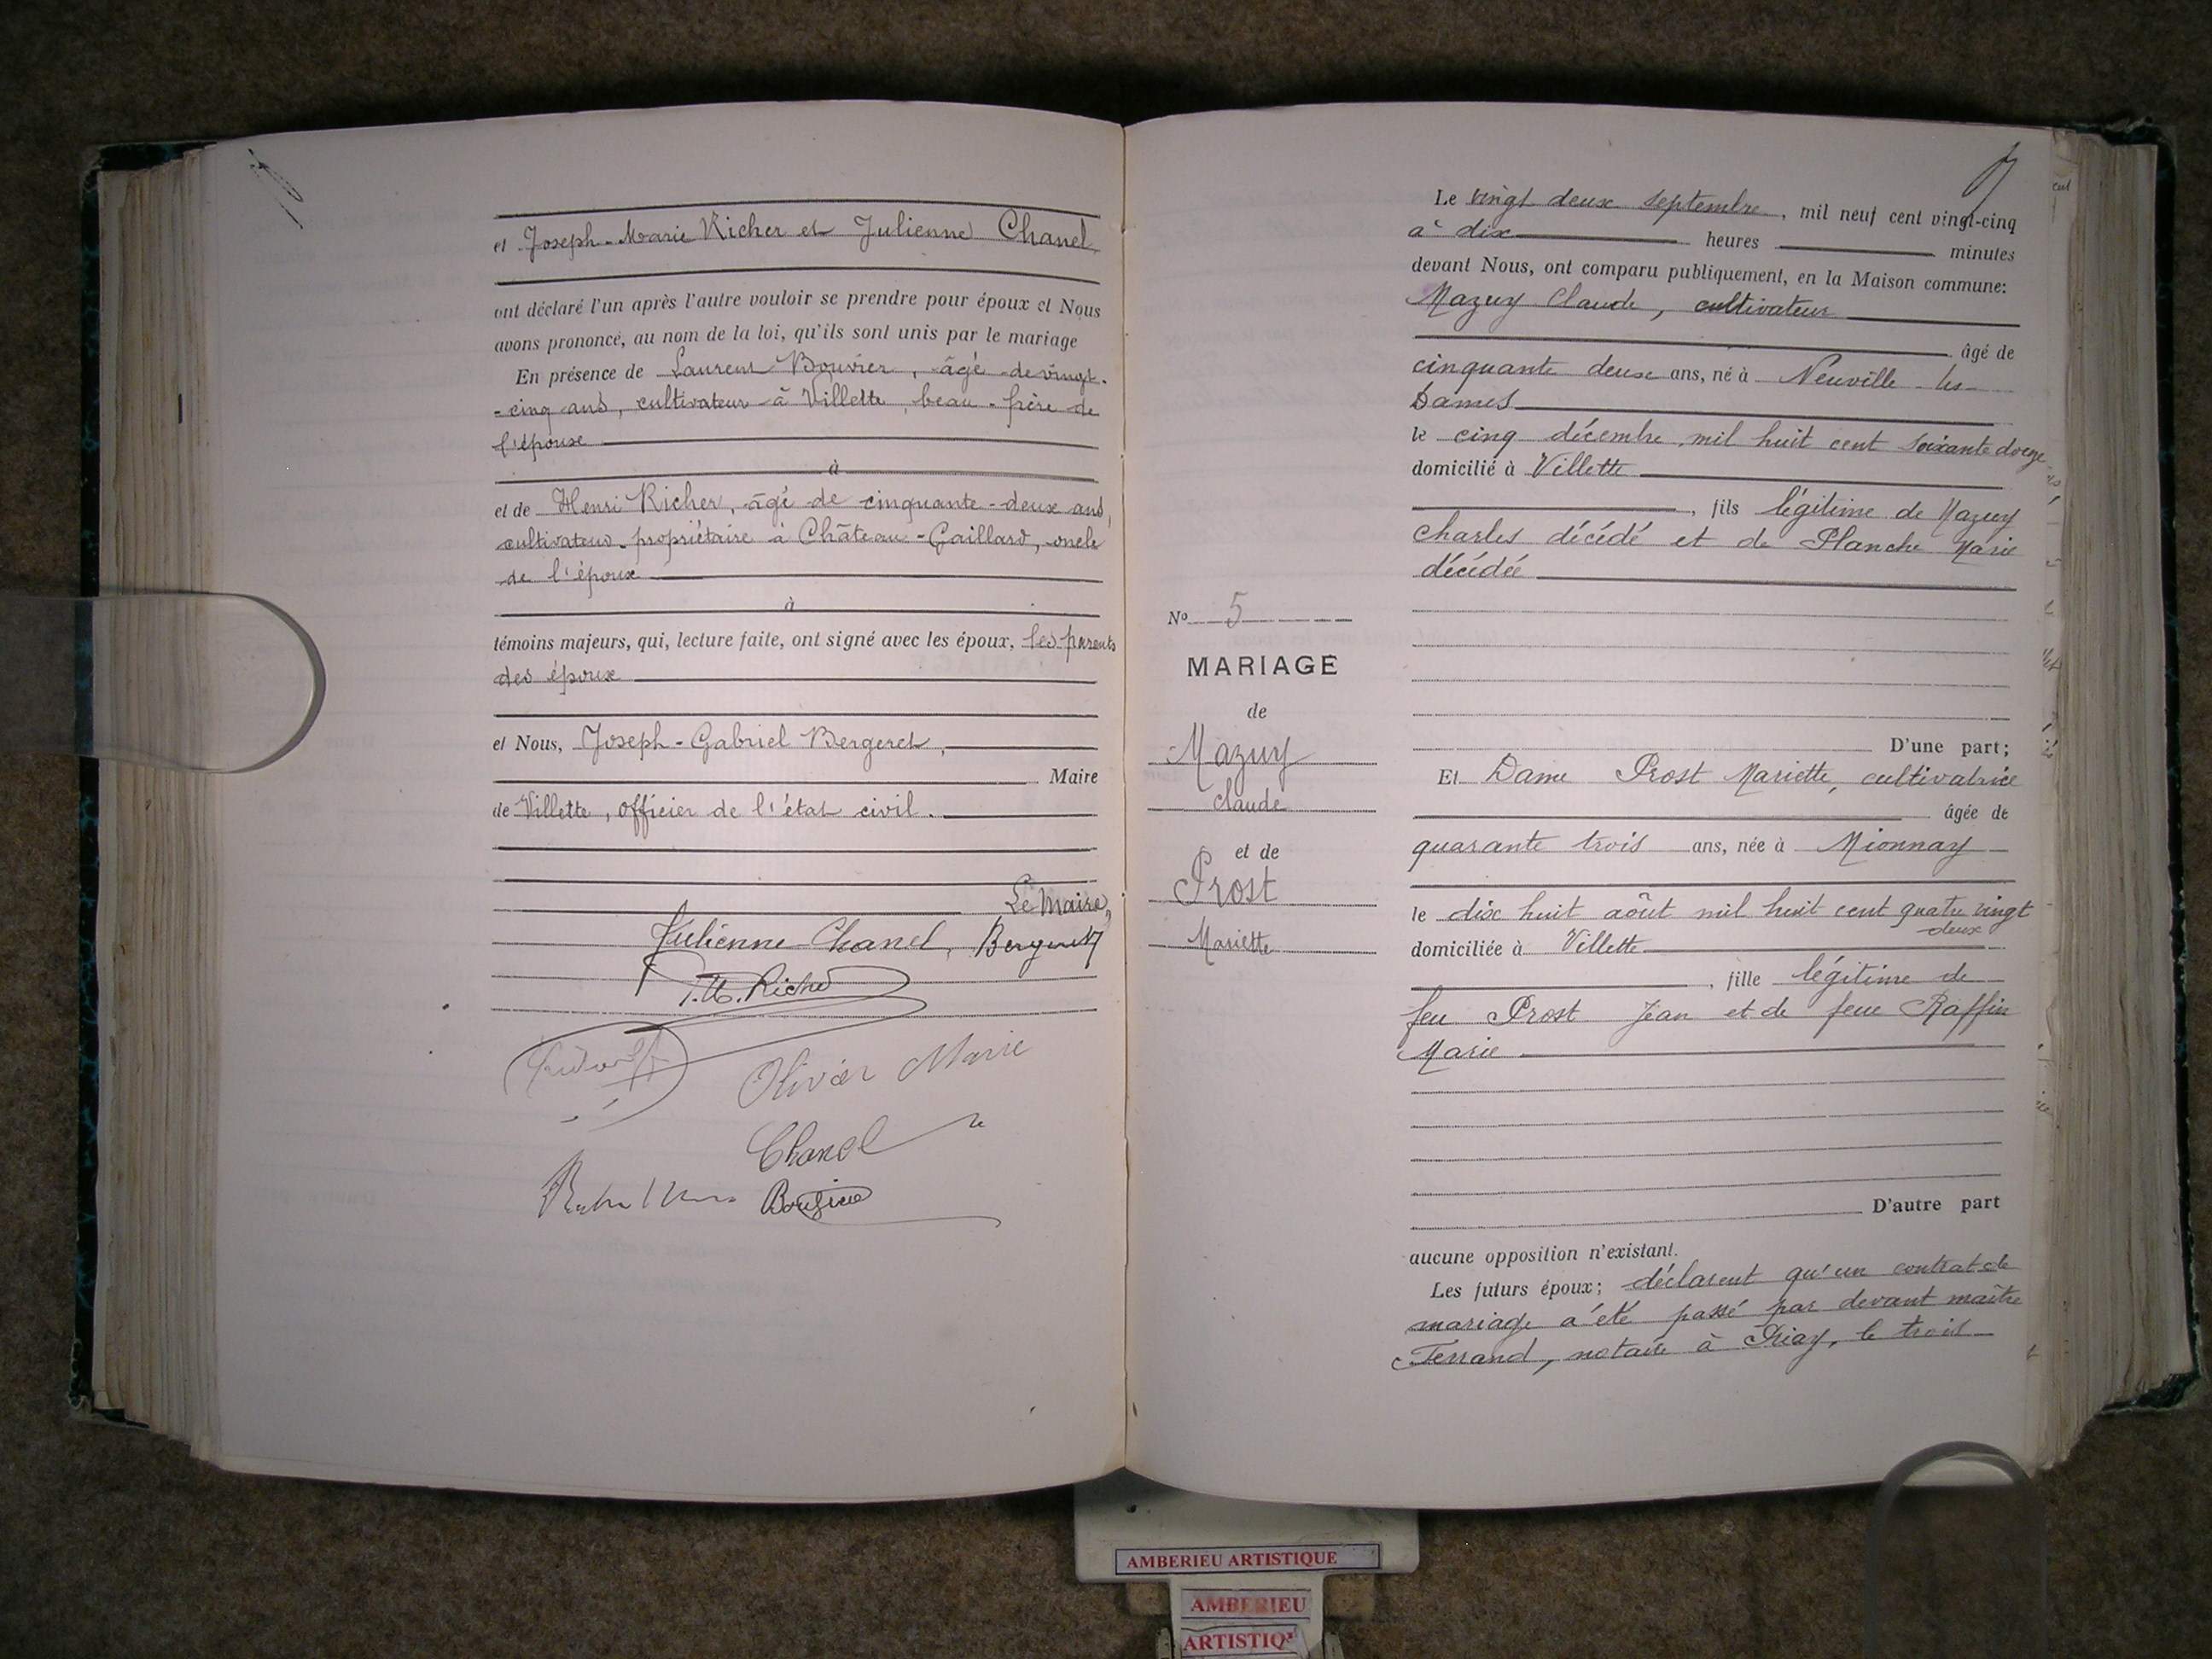 et Joseph-Marie Richer et Julienne Chanel
ont déclaré l'un après l'autre vouloir se prendre pour époux et Nous
avons prononcé, au nom de la loi, qu'ils sont unis par le mariage
En présence de Laurent Bouvier, âgé de vingt-
-cinq ans, cultivateur à Villette, beau-frère de
l'épouse
à
et de Henri Richer, âgé de cinquante-deux ans,
cultivateur-propriétaire à Château-Gaillard, oncle
de l'époux
à
témoins majeurs, qui, lecture faite, ont signé avec les époux, les parents
des époux
et Nous, Joseph-Gabriel Bergeret,
Maire
de Villette, officier de l'état civil.
Le Maire,
Julienne Chanel, Bergeret
J.M. Richer
Olivier Marie
Chanel
Le vingt deux septembre, mil neuf cent vingt-cinq
à dix heures minutes
devant Nous, ont comparu publiquement, en la Maison commune:
Mazuy Claude, cultivateur
âgé de
cinquante deux ans, né à Neuville-les-
Dames
le cinq décembre mil huit cent soixante douze
domicilié à Villette
, fils légitime de Mazuy
Charles décédé et de Planche Marie
décédée
D'une part;
Et Dame Prost Mariette, cultivatrice
âgée de
quarante trois ans, née à Mionnay
le dix huit août mil huit cent quatre vingt
deux
domiciliée à Villette
, fille légitime de
feu Prost Jean et de feue Raffin
Marie
D'autre part
aucune opposition n'existant.
Les futurs époux; déclarent qu'un contrat de
mariage a été passé par devant maître
Ferrand, notaire à Priay, le trois
No 5
MARIAGE
de
Mazuy
Claude
et de
Prost
Mariette
AMBERIEU ARTISTIQUE
AMBERIEU
ARTISTIQ